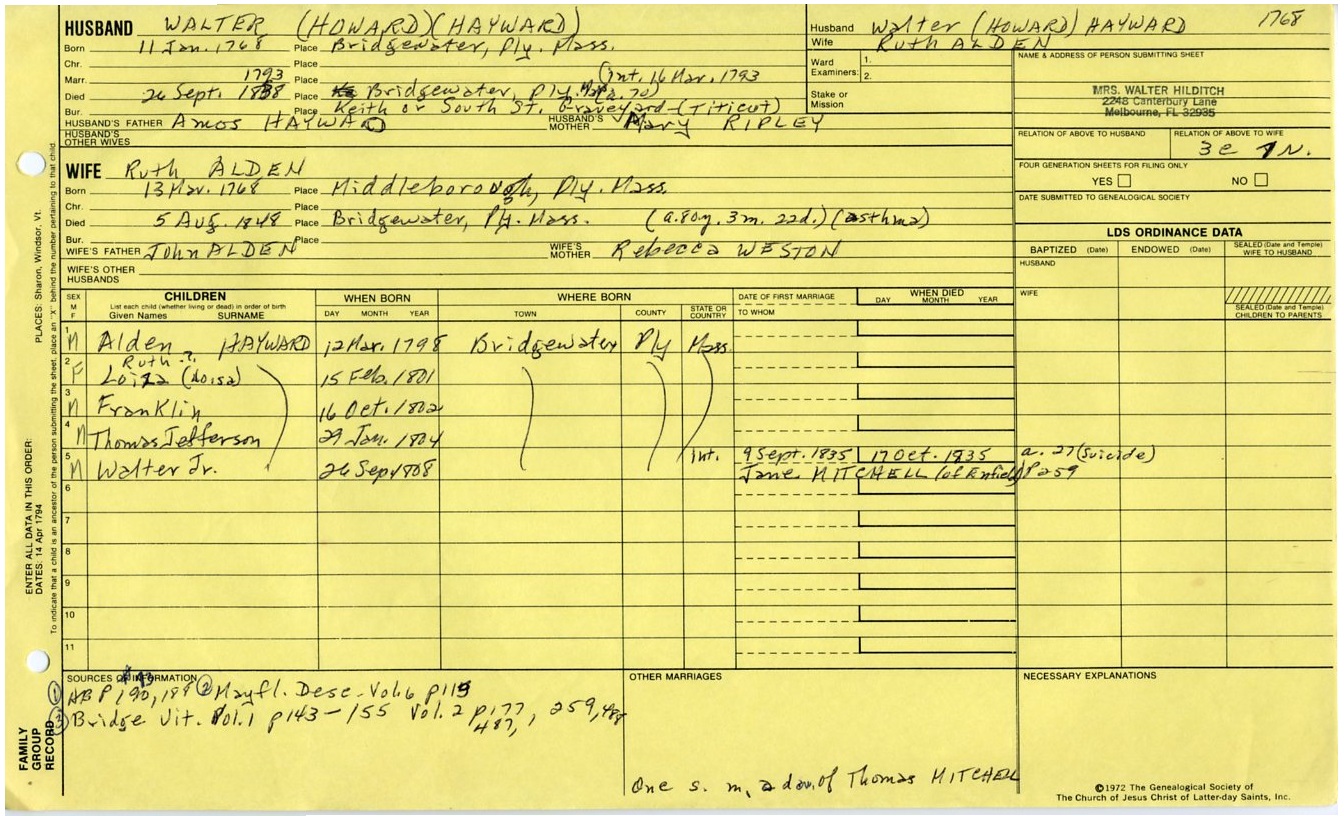 HUSBAND WALTER (HOWARD)(HAYWARD)
Born 11 Jan. 1768 Place Bridgewater, Ply. Mass.
Chr. Place
Marr. 1793 Place (int. 16 Mar. 1793
Died 26 Sept. 1838 Place Bridgewater, Ply. Mass. (a. 70)
Bur. Place Keith or South St. Graveyard (Titicut)
HUSBAND'S FATHER Amos HAYWARD HUSBAND'S MOTHER Mary RIPLEY
HUSBAND'S OTHER WIVES
Husband Walter (HOWARD) HAYWARD 1768
Wife Ruth ALDEN
Ward Examiners: 1.
2.
Stake or Mission
NAME & ADDRESS OF PERSON SUBMITTING SHEET
MRS. WALTER HILDITCH
2248 Canterbury Lane
Melbourne, FL 32935
RELATION OF ABOVE TO HUSBAND RELATION OF ABOVE TO WIFE
3c 7 N.
FOUR GENERATION SHEETS FOR FILING ONLY
YES NO
DATE SUBMITTED TO GENEALOGICAL SOCIETY
WIFE Ruth ALDEN
Born 13 Mar. 1768 Place Middleborough, Ply. Mass.
Chr. Place
Died 5 Aug. 1848 Place Bridgewater, Ply. Mass. (a. 80y. 3m. 22d.) (asthma)
Bur. Place
WIFE'S FATHER John ALDEN WIFE'S MOTHER Rebecca WESTON
WIFE'S OTHER HUSBANDS
LDS ORDINANCE DATA
BAPTIZED (Date) ENDOWED (Date) SEALED (Date and Temple) WIFE TO HUSBAND
HUSBAND
WIFE
SEALED (Date and Temple) CHILDREN TO PARENTS
SEX M F CHILDREN WHEN BORN WHERE BORN DATE OF FIRST MARRIAGE WHEN DIED
List each child (whether living or dead) in order of birth
Given Names SURNAME DAY MONTH YEAR TOWN COUNTY STATE OR COUNTRY TO WHOM DAY MONTH YEAR
1 M Alden HAYWARD 12 Mar. 1798 Bridgewater Ply Mass.
Ruth ?.
2 F Loiza (Loisa) 15 Feb. 1801
3 M Franklin 16 Oct. 1802
4 M Thomas Jefferson 29 Jan. 1804
5 M Walter Jr. 26 Sep 1808 Int. 9 Sept. 1835 17 Oct. 1935 a. 27 (suicide)
Jane MITCHELL (of Enfield) P 259
6
7
8
9
10
11
SOURCES OF INFORMATION
① AB P 190, 188 ② Mayfl. Desc. Vol. 6 p 115
③ Bridge Vit. Vol. 1 p 143-155 Vol. 2 p 177, 259, 488
487,
OTHER MARRIAGES
One s. m. a dau. of Thomas MITCHELL
NECESSARY EXPLANATIONS
©1972 The Genealogical Society of
The Church of Jesus Christ of Latter-day Saints, Inc.
FAMILY GROUP RECORD
ENTER ALL DATA IN THIS ORDER:
DATES: 14 Apr 1794
PLACES: Sharon, Windsor, Vt.
To indicate that a child is an ancestor of the person submitting the sheet, place an "X" behind the number pertaining to that child.